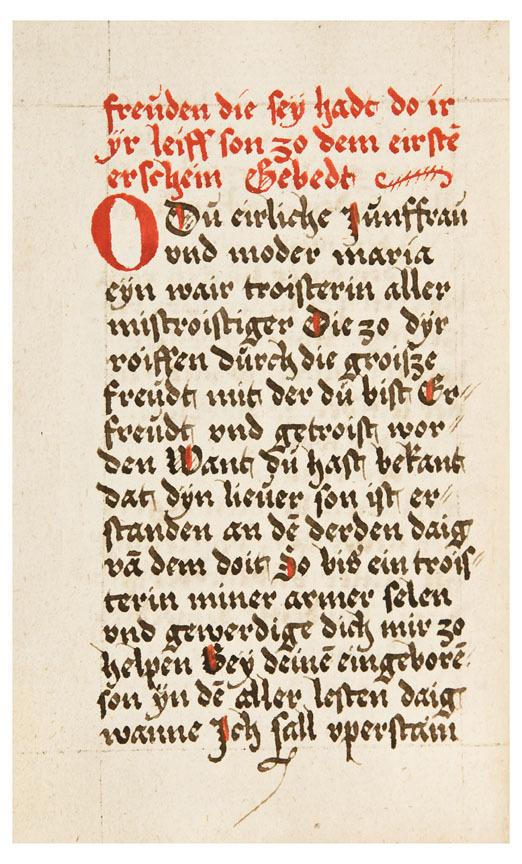 freüden die sey hadt do ir
ÿr leiff son zo dem eirstē
erschein Gebedt
O Dü eirliche Jünffraü
vnd moder maria
eÿn wair troisterin aller
mistroistiger Die zo dÿr
roiffen dürch die groisze
freüdt mit der dü bist Er//
freüdt vnd getroist wor//
den Want dü hast bekant
dat dÿn lieüer son ist er//
standen an dē derden daig
vā dem doit So bis ein trois//
terin miner armer selen
vnd gewerdige dich mir zo
helpen Bey deinē eingeborē
son ÿn dē aller lesten daig
wanne Ich sall vperstain